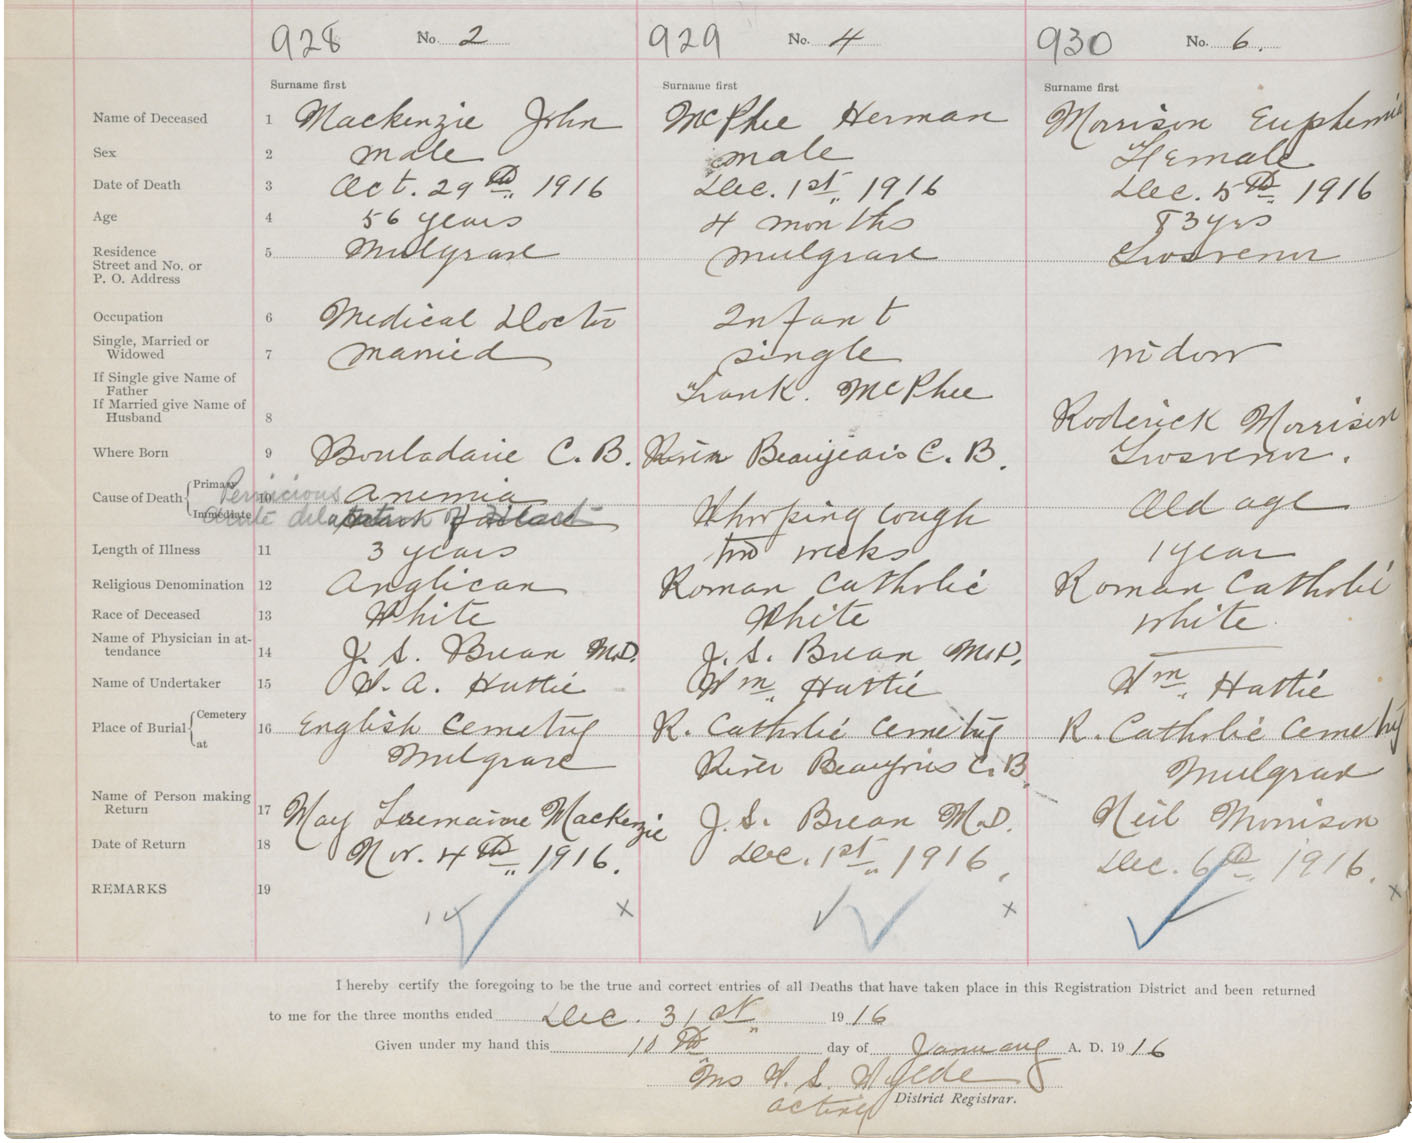 928 No. 2 929 No. 4 930 No. 6.
Surname first Surname first Surname first
Name of Deceased 1 Mackenzie John McPhee Herman Morrison Euphemia
Sex 2 male male Female
Date of Death 3 Oct. 29th 1916 Dec. 1st 1916 Dec. 5th 1916
Age 4 56 years 4 months 83 yrs
Residence
Street and No. or 5 Mulgrave Mulgrave Grosvenor
P. O. Address
Occupation 6 Medical Doctor Infant
Single, Married or
Widowed 7 Married single widow
If Single give Name of
Father Frank. McPhee
If Married give Name of
Husband 8 Roderick Morrison
Where Born 9 Boulardarie C. B. River Beaujeais C. B. Grosvenor.
Cause of Death Primary 10 Pernicious Anemia Old age
Immediate Acute dilatation of Heart Whooping cough
Length of Illness 11 3 years two weeks 1 year
Religious Denomination 12 Anglican Roman Catholic Roman Catholic
Race of Deceased 13 White White White
Name of Physician in at-
tendance 14 J. S. Brean M.D. J. S. Brean M.D.
Name of Undertaker 15 W. A. Hattie Wm. Hattie Wm. Hattie
Place of Burial Cemetery 16 English Cemetery R. Catholic Cemetery R. Catholic Cemetery
at Mulgrave River Beaujeais C. B. Mulgrave
Name of Person making
Return 17 May Mackenzie J. S. Brean M.D. Neil Morrison
Date of Return 18 Nov. 4th 1916. Dec. 1st 1916. Dec. 6th 1916.
REMARKS 19 x x x
I hereby certify the foregoing to be the true and correct entries of all Deaths that have taken place in this Registration District and been returned
to me for the three months ended Dec. 31st 1916
Given under my hand this 10th day of January A. D. 1916
Mrs W. S. Wylde
acting District Registrar.